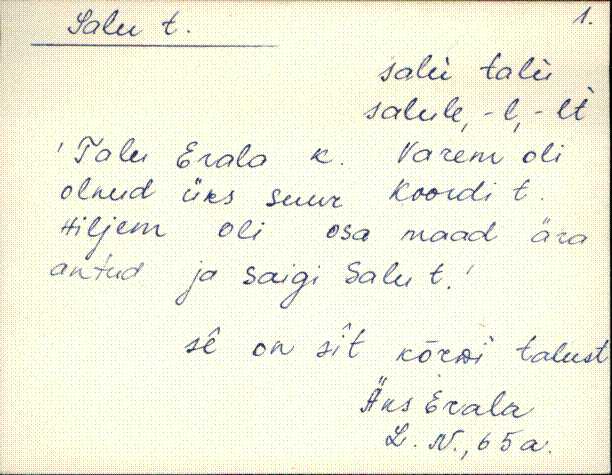 Salu t.
1.
salù talù
salule, -l, -lt
'Talu Erala k. Varem oli
olnud üks suur Koordi t.
Hiljem oli osa maad ära
antud ja saigi Salu t.'
sê on sît kõrvõi talust
Äks Erala
L. N., 65 a.